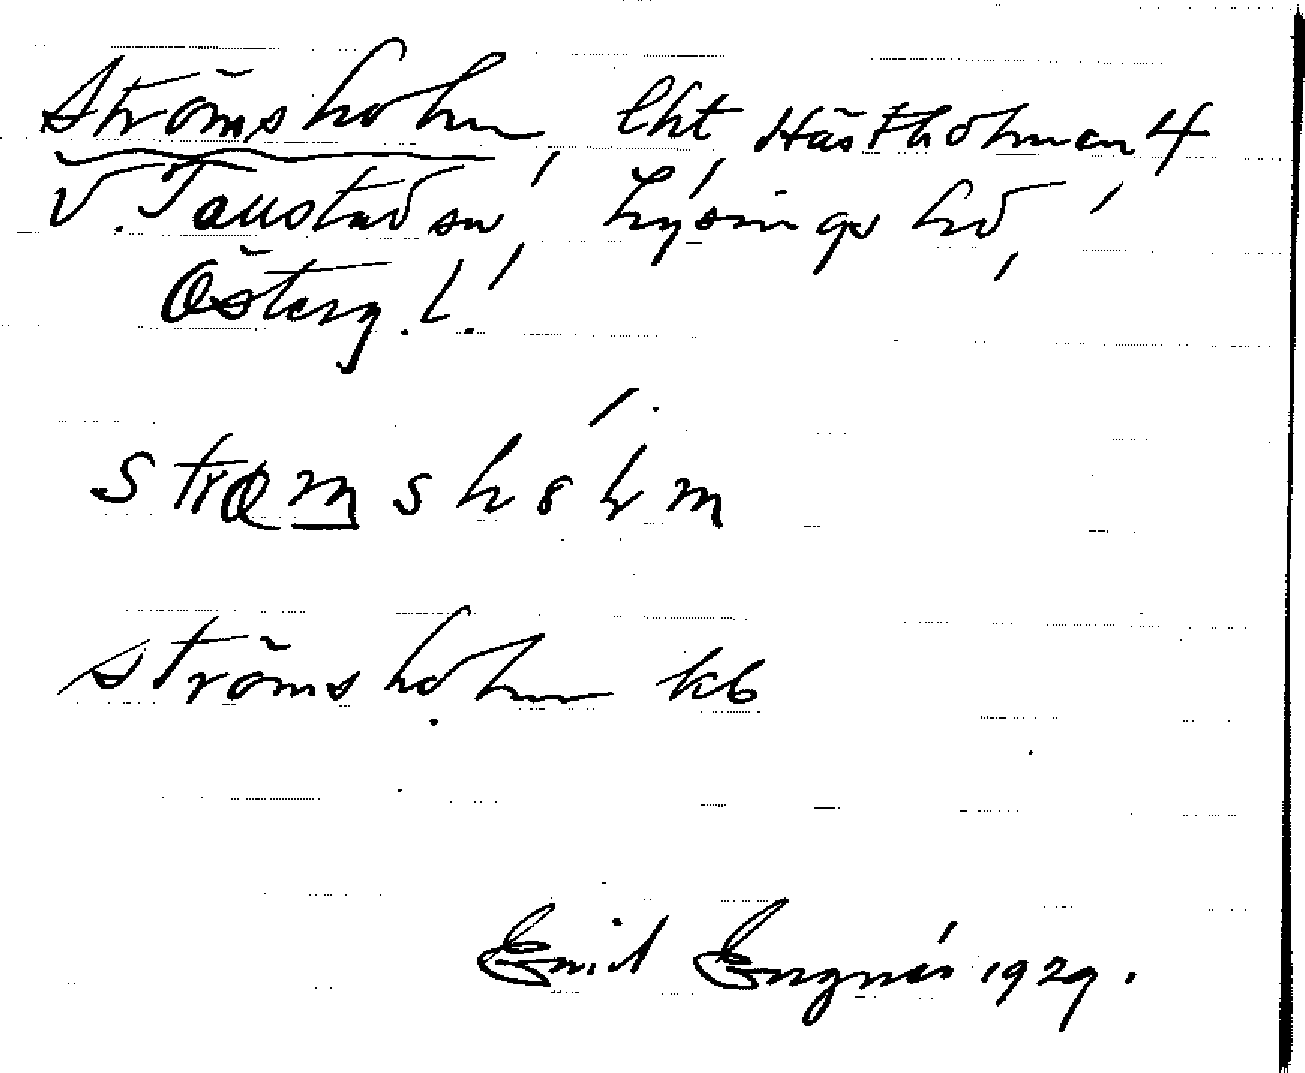 Strömsholm, lht, Hästholmen 4
V. Tollstad sn, Lysings hd,
Österg. l.
strǫmsholm
Strömsholm kb
Emil Engnér 1929.